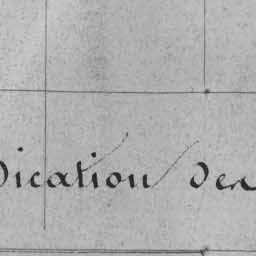 dication des